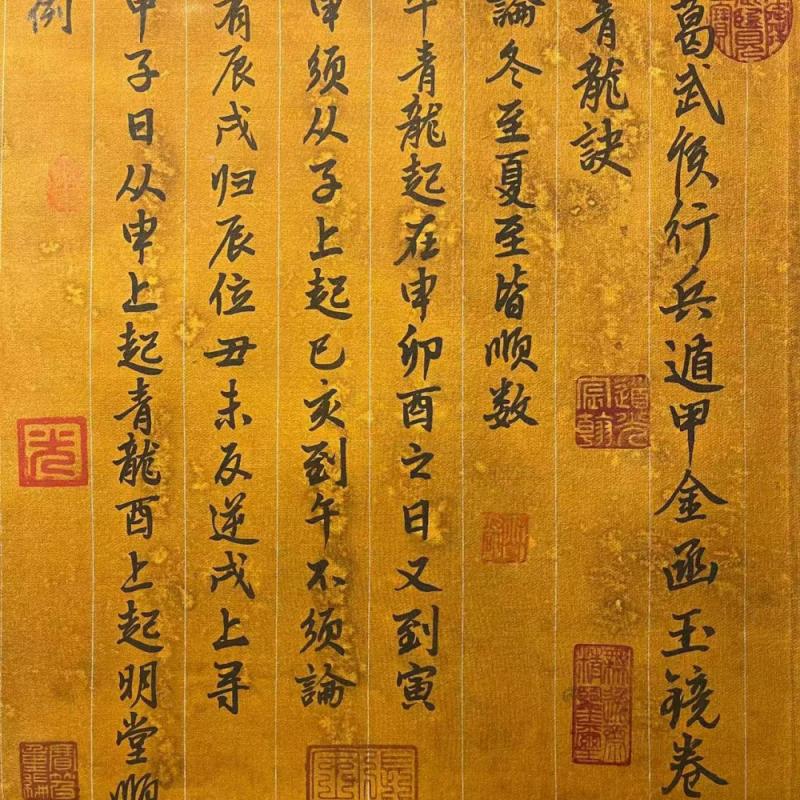 葛武侯行兵遁甲金函玉镜卷
青龍訣
論冬至夏至皆順数
午青龍起在申卯酉之日又到寅
申须从子上起巳亥到午不须論
有辰戌归辰位丑未反逆戌上寻
甲子日从申上起青龍酉上起明堂順
例